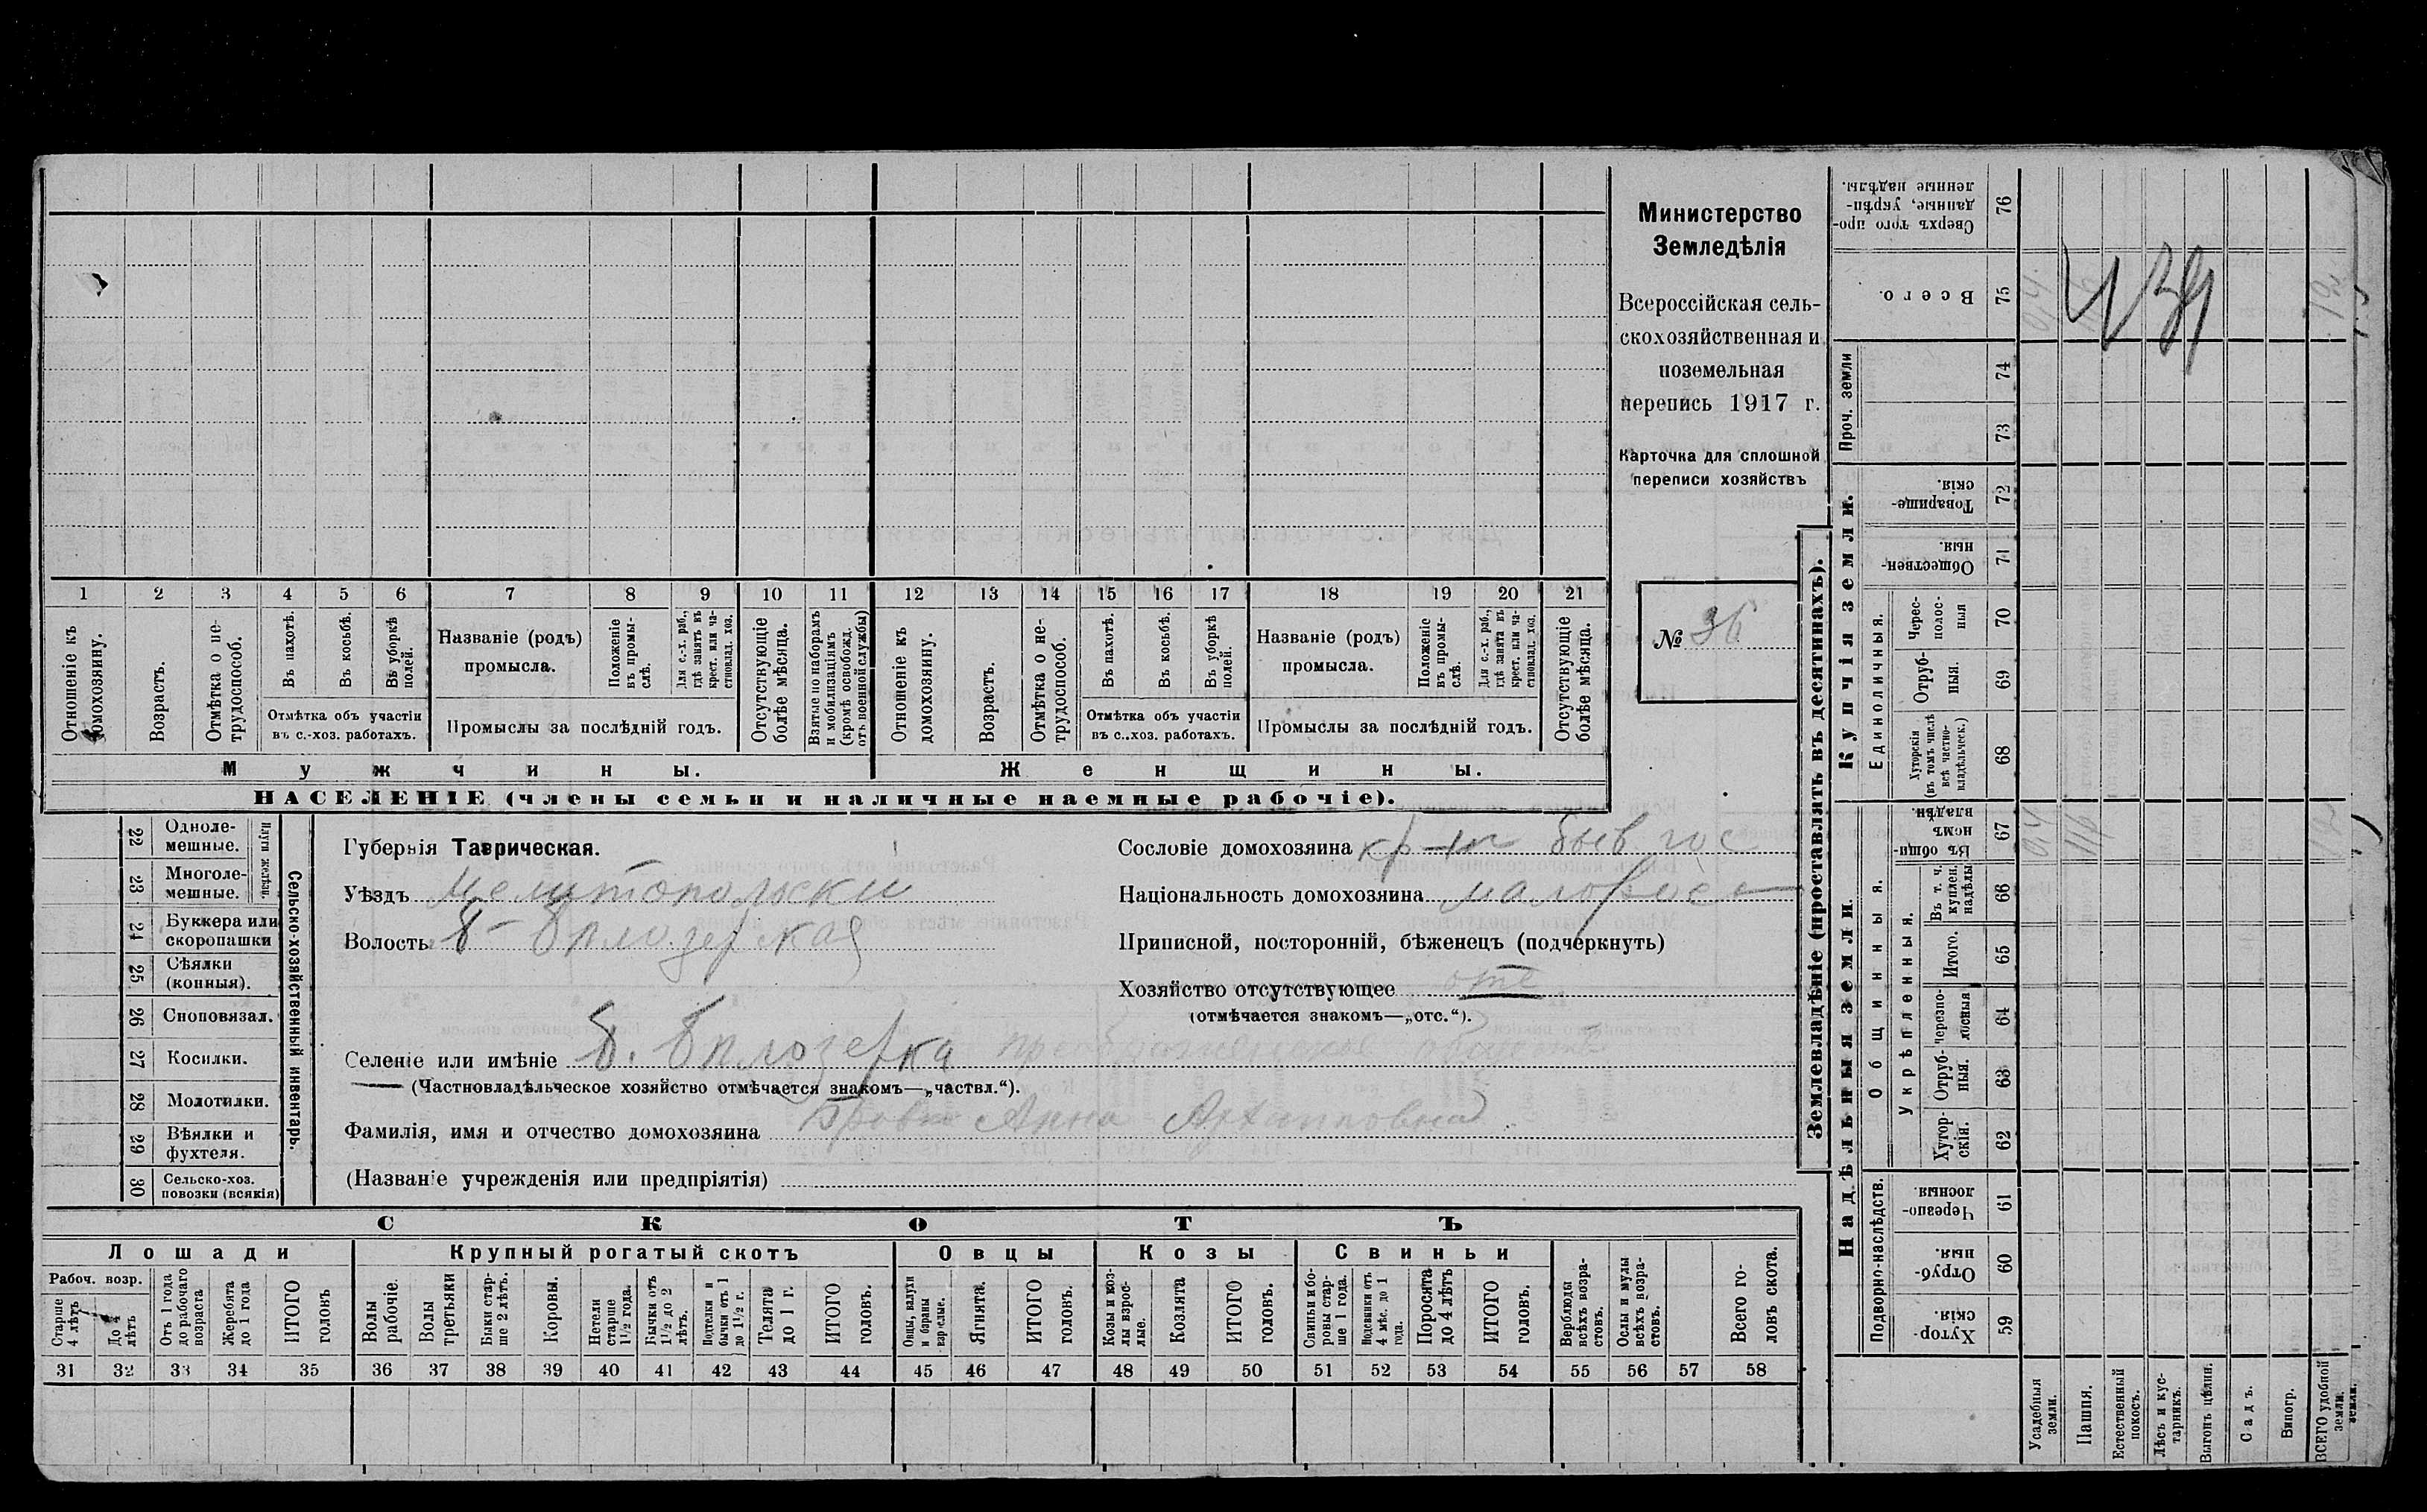 Министерство
Земледѣлія
Всероссійская сель-
скохозяйственная и
поземельная
перепись 1917 г.
Карточка для сплошной
переписи хозяйствъ
№ 36
1 2 3 4 5 6 7 8 9 10 11 12 13 14 15 16 17 18 19 20 21
Отношеніе къ домохозяину.
Возрастъ.
Отмѣтка о не-трудоспособ.
Въ пахотѣ.
Въ косьбѣ.
Въ уборкѣ полей.
Отмѣтка объ участіи
въ с.-хоз. работахъ.
Названіе (родъ)
промысла.
Положеніе въ промы-слѣ.
Для с.-х. раб., гдѣ занятъ въ крест. или ча-стновлад. хоз.
Промыслы за послѣдній годъ.
Отсутствующіе болѣе мѣсяца.
Взятые по наборамъ и мобилизаціямъ (кромѣ освобожд. отъ военной службы)
Отношеніе къ домохозяину.
Возрастъ.
Отмѣтка о не-трудоспособ.
Въ пахотѣ.
Въ косьбѣ.
Въ уборкѣ полей.
Отмѣтка объ участіи
въ с..хоз. работахъ.
Названіе (родъ)
промысла.
Положеніе въ промы-слѣ.
Для с.-х. раб., гдѣ занята въ крест. или ча-стновлад. хоз.
Промыслы за послѣдній годъ.
Отсутствующіе болѣе мѣсяца.
Мужчины.
Женщины.
НАСЕЛЕНІЕ (члены семьи и наличные наемные рабочіе).
22 Одноле-мешные.
23 Многоле-мешные.
Плуги желѣзн.
24 Буккера или скоропашки
25 Сѣялки (конныя).
26 Сноповязал.
27 Косилки.
28 Молотилки.
29 Вѣялки и фухтеля.
30 Сельско-хоз. повозки (всякія)
Сельско-хозяйственный инвентарь.
Губернія Таврическая.
Уѣздъ Мелитопольски
Волость Б-Бѣлозерская
Селеніе или имѣніе Б. Бѣлозерка
(Частновладѣльческое хозяйство отмѣчается знакомъ—„частвл.“).
Фамилія, имя и отчество домохозяина Анна Архиповна
(Названіе учрежденія или предпріятія)
Сословіе домохозяина кр-ка быв гос
Національность домохозяина малорос
Приписной, посторонній, бѣженецъ (подчеркнуть)
Хозяйство отсутствующее отс
(отмѣчается знакомъ—„отс.“).
СКОТЪ
Лошади
Крупный рогатый скотъ
Овцы
Козы
Свиньи
Рабоч. возр.
Старше 4 лѣтъ
До 4 лѣтъ
Отъ 1 года до рабочаго возраста
Жеребята до 1 года
ИТОГО головъ
Волы рабочіе.
Волы третьяки
Быки стар-ше 2 лѣтъ.
Коровы.
Нетели старше 1½ года.
Бычки отъ 1½ до 2 лѣтъ.
Подтелки и бычки отъ 1 до 1½ г.
Телята до 1 г.
ИТОГО головъ.
Овцы, валухи и бараны взрослые.
Ягнята.
ИТОГО головъ.
Козы и коз-лы взрос-лые.
Козлята
ИТОГО головъ.
Свиньи и бо-ровы стар-ше 1 года.
Подсвинки отъ 4 мѣс. до 1 года.
Поросята до 4 лѣтъ
ИТОГО головъ.
Верблюды всѣхъ возра-стовъ.
Ослы и мулы всѣхъ возра-стовъ.
Всего го-ловъ скота.
31 32 33 34 35 36 37 38 39 40 41 42 43 44 45 46 47 48 49 50 51 52 53 54 55 56 57 58
Землевладѣніе (проставлять въ десятинахъ).
Купчія земли.
Надѣльныя земли.
Проч. земли
Единоличныя.
Общинныя.
Укрѣпленныя.
Подворно-наслѣдств.
Сверхъ того про-данные, укрѣп-ленные надѣлы. 76
Всего. 75
74
73
Товарище-скія. 72
Обществен-ныя. 71
Черес-полос-ныя 70
Отруб-ныя. 69
Хуторскія (въ томъ числѣ всѣ частно-владѣльческ.) 68
Въ общи-номъ владѣн. 67
Въ т. ч. куплен. надѣлы 66
Итого. 65
Черезпо-лосныя 64
Отруб-ныя. 63
Хутор-скія. 62
Черезпо-лосныя. 61
Отруб-ныя. 60
Хутор-скія. 59
Усадебныя земли.
Пашня.
Естественный покосъ.
Лѣсъ и кус-тарникъ.
Выгонъ цѣлин.
Садъ.
Виногр.
ВСЕГО удобной земли.